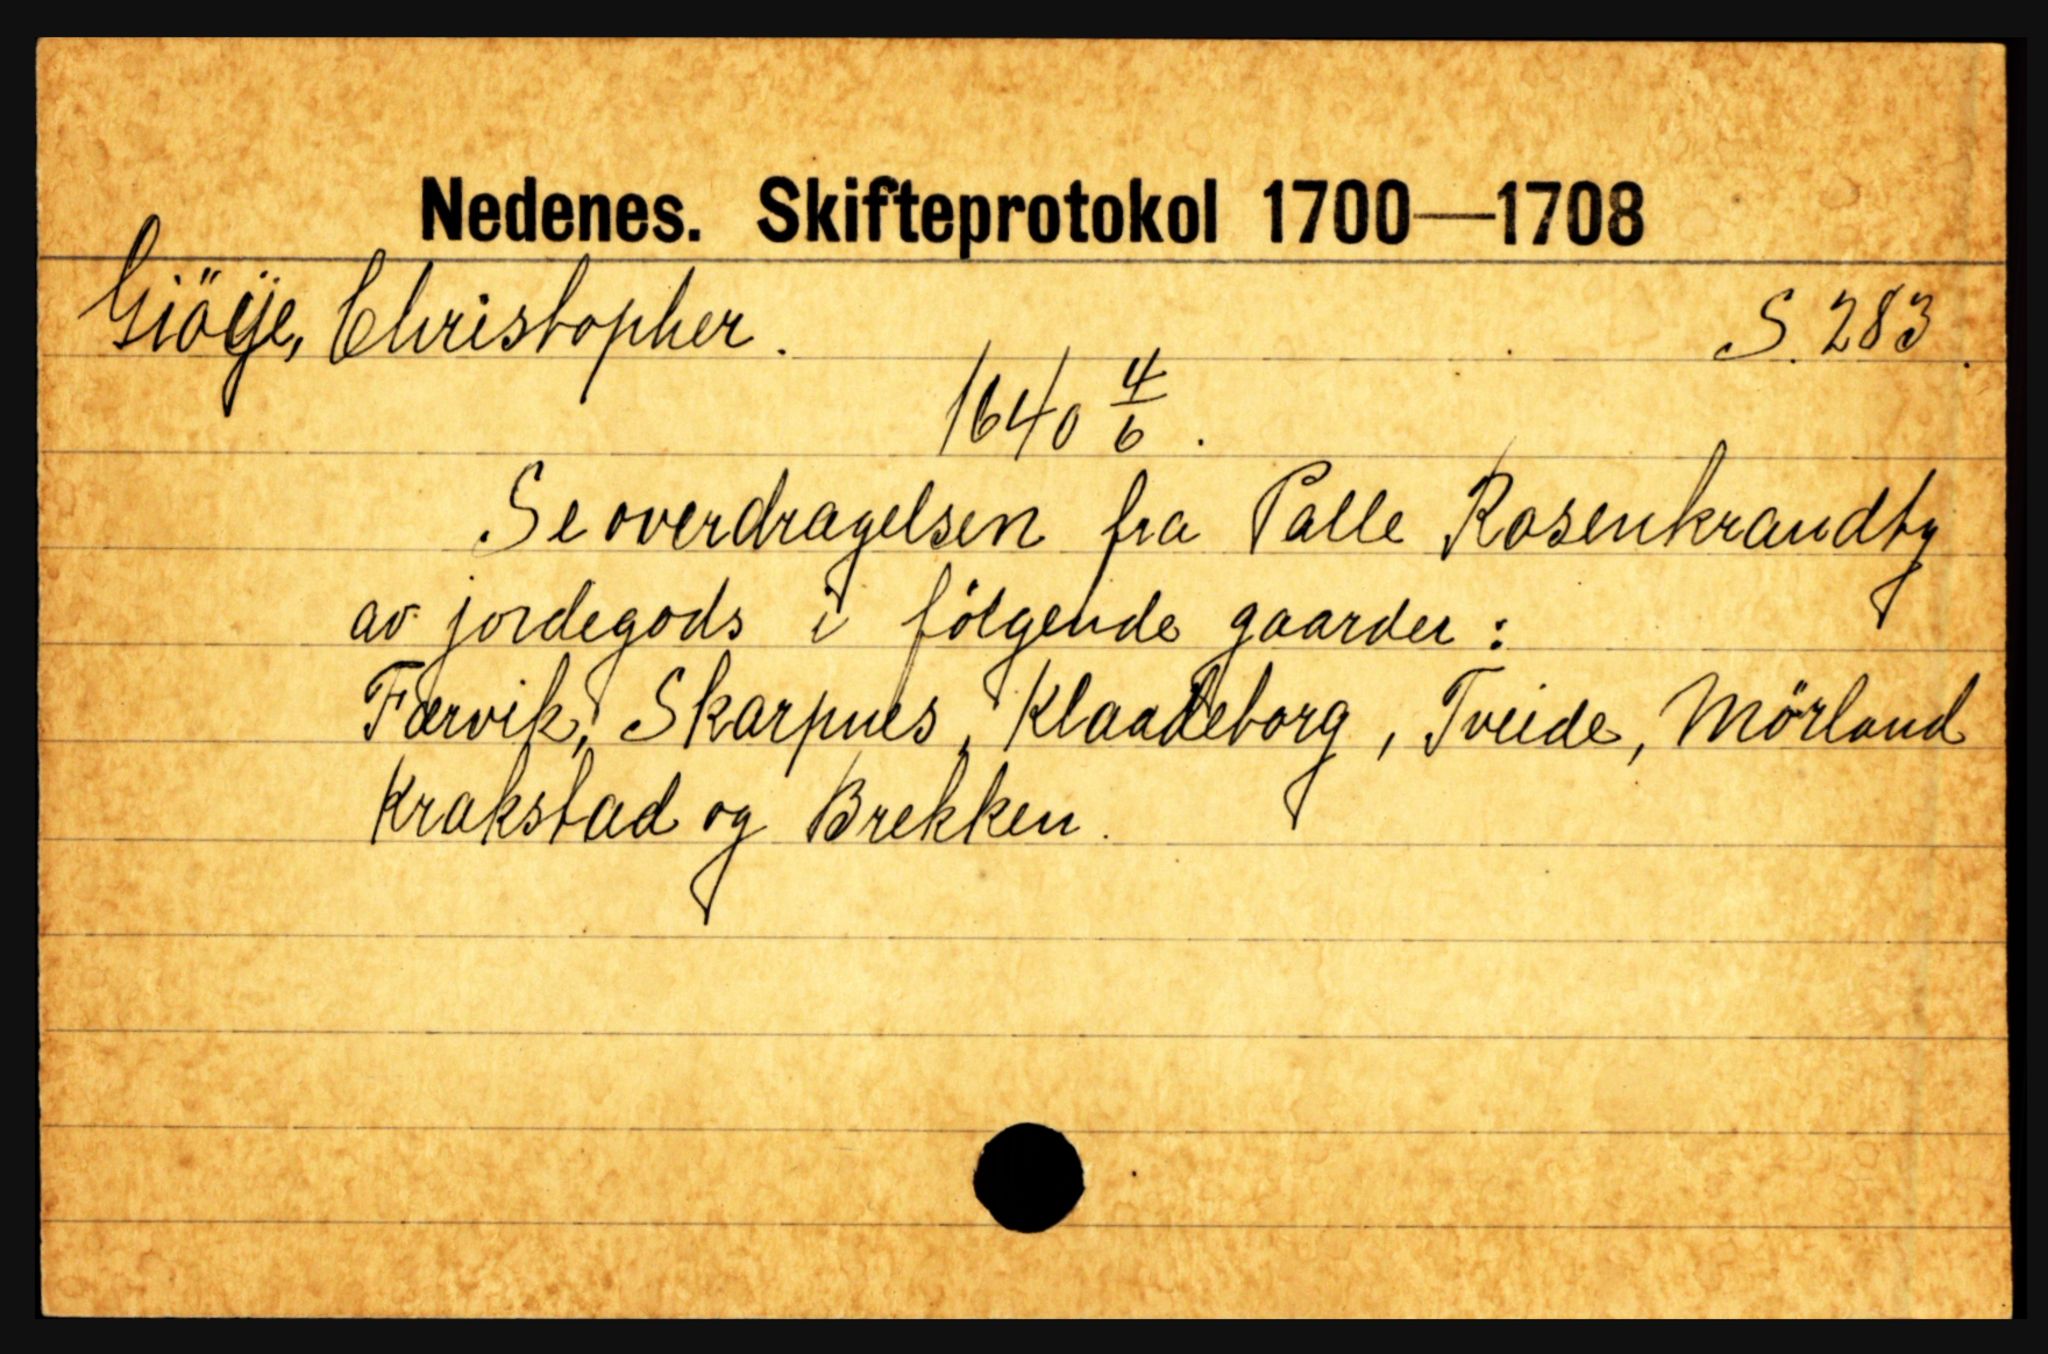 Nedenes. Skifteprotokol 1700—1708
Giöije, Christopher. S. 283.
1640 4/6.
Se overdragelsen fra Palle Rosenkrandty
av jordegods i fölgende gaarder:
Færvik, Skarpnes, Klaadeborg, Tveide, Mörland
Krakstad og Brekken.